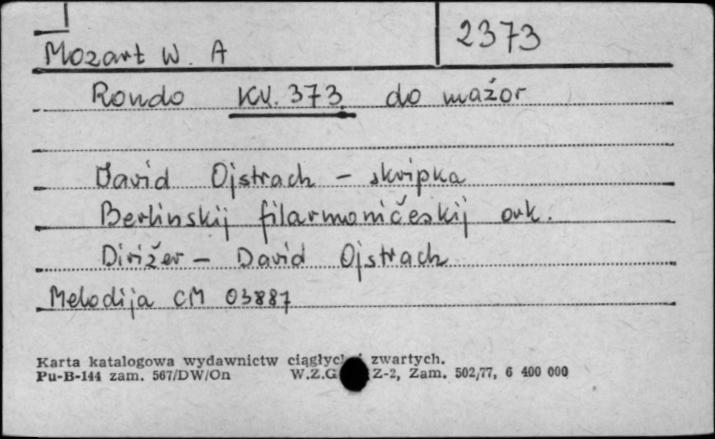 Mozart W. A 2373
Rondo KV. 373 do mažor
David Ojstrach - skripka
Berlinskij filarmoničeskij ork.
Dirižer - David Ojstrach
Melodija CM 03887
Karta katalogowa wydawnictw zwartych.
Pu-B-144 zam. 567/DW/On W.Z.G Z-2, Zam. 502/77, 6 400 000